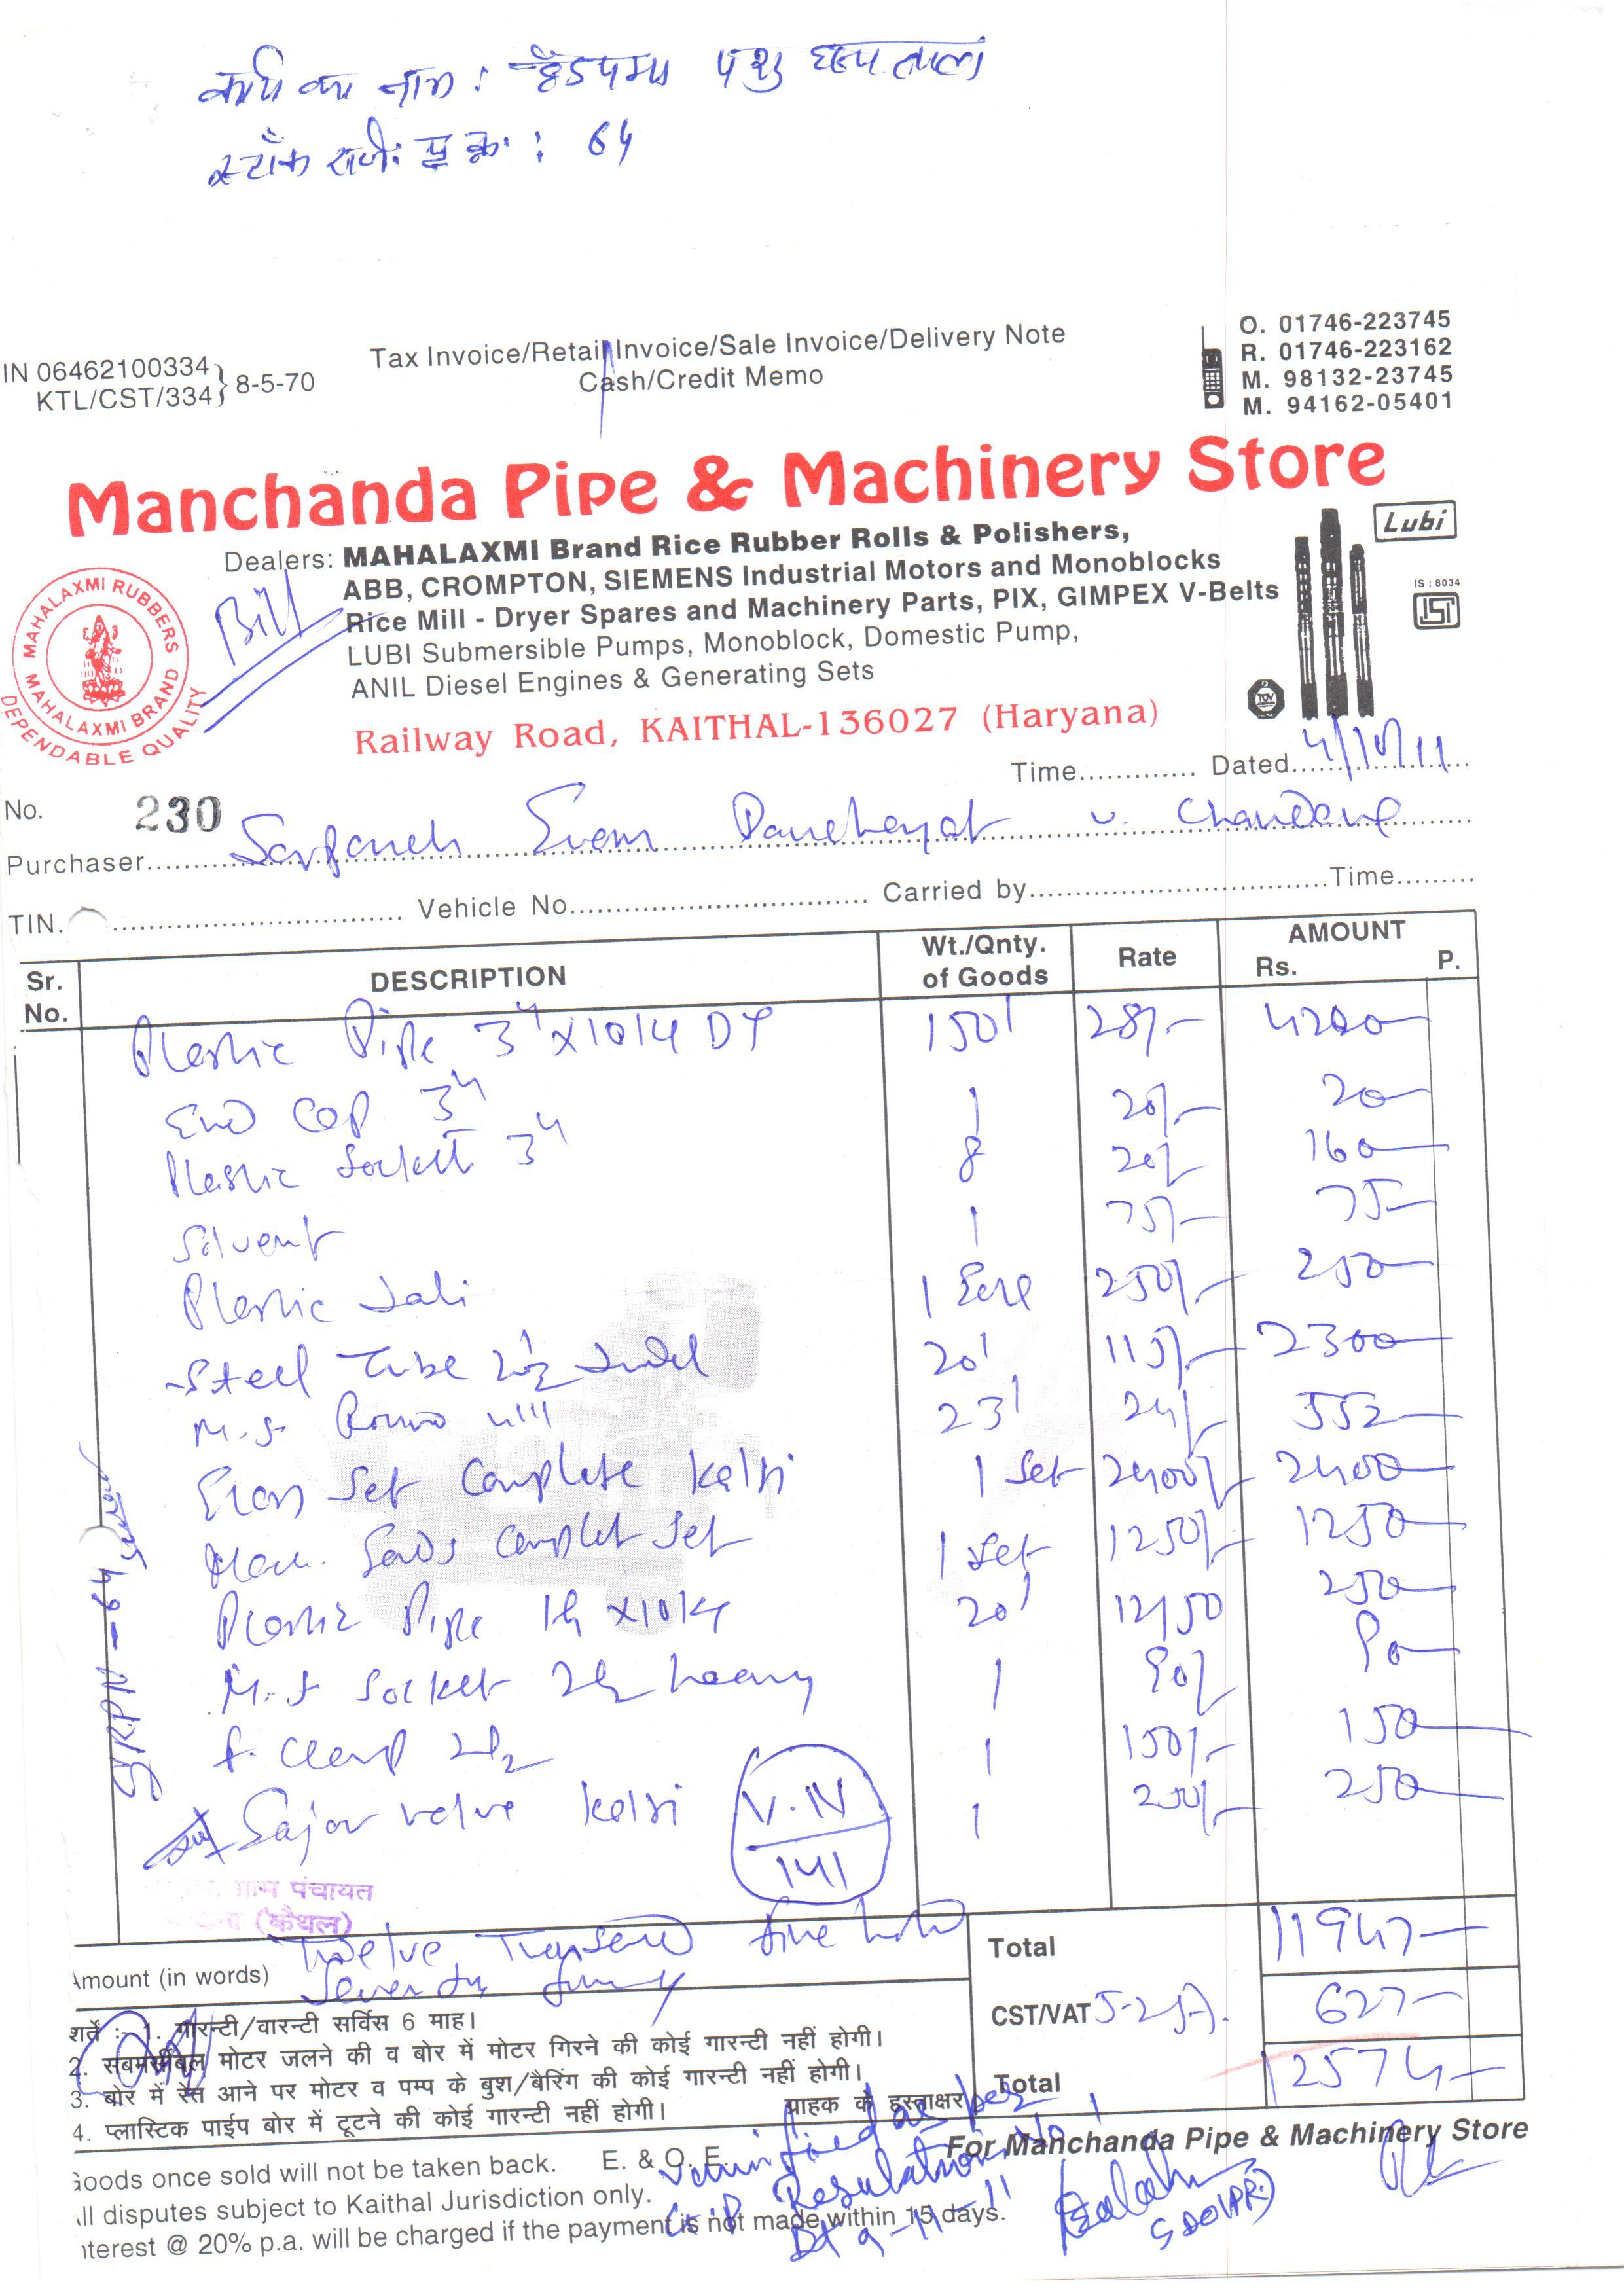 का नाम : हैंडपम्प पशु
स्टॉक रजि. पृ क्र. : 64
IN 06462100334
KTL/CST/334 } 8-5-70
Tax Invoice/Retail Invoice/Sale Invoice/Delivery Note
Cash/Credit Memo
O. 01746-223745
R. 01746-223162
M. 98132-23745
M. 94162-05401
Manchanda Pipe & Machinery Store
Dealers: MAHALAXMI Brand Rice Rubber Rolls & Polishers,
ABB, CROMPTON, SIEMENS Industrial Motors and Monoblocks
Rice Mill - Dryer Spares and Machinery Parts, PIX, GIMPEX V-Belts
LUBI Submersible Pumps, Monoblock, Domestic Pump,
ANIL Diesel Engines & Generating Sets
Railway Road, KAITHAL-136027 (Haryana)
MAHALAXMI RUBBERS
MAHALAXMI BRAND
DEPENDABLE QUALITY
Bill
Lubi
IS : 8034
ISI
TUV
Time............. Dated....4/10/11
No. 230
Purchaser....Sarpanch Gram Panchayat v. Chandana
TIN. .............................. Vehicle No............................... Carried by...............................Time.........
Sr. No. DESCRIPTION Wt./Qnty. of Goods Rate AMOUNT Rs. P.
Plastic Pipe 3" x 10/4 150' 28/- 4200
End Cap 3" 1 20/- 20
Plastic Socket 3" 8 20/- 160
Solvent 1 75/- 75
Plastic Jali 1 250/- 250
Steel Tube 2½ 20' 115/- 2300
M.S Round 23' 24/- 552
Set Complete Kalsi 1 Set 2400/- 2400
Complet Set 1 Set 1250/- 1250
Plastic Pipe 1½ x 10/4 20' 12/50 250
M.S Socket 2½ heavy 1 90/- 90
Clamp 2½ 1 150/- 150
valve Kalsi 1 250/- 250
SRPN-64
V.N
141
ग्राम पंचायत
(कैथल)
Amount (in words) Twelve Thousand five hundred
Seventy four
Total 11947
CST/VAT 5.25%. 627
Total 12574
शर्तें :- 1. गारन्टी/वारन्टी सर्विस 6 माह।
2. सबमर्सीबल मोटर जलने की व बोर में मोटर गिरने की कोई गारन्टी नहीं होगी।
3. बोर में रेत आने पर मोटर व पम्प के बुश/बैरिंग की कोई गारन्टी नहीं होगी।
4. प्लास्टिक पाईप बोर में टूटने की कोई गारन्टी नहीं होगी।
ग्राहक के हस्ताक्षर
For Manchanda Pipe & Machinery Store
Goods once sold will not be taken back. E. & O. E.
All disputes subject to Kaithal Jurisdiction only.
Interest @ 20% p.a. will be charged if the payment is not made within 15 days.
as per
Resulation No. 1
Dt 9-11-11
SDO(PR)